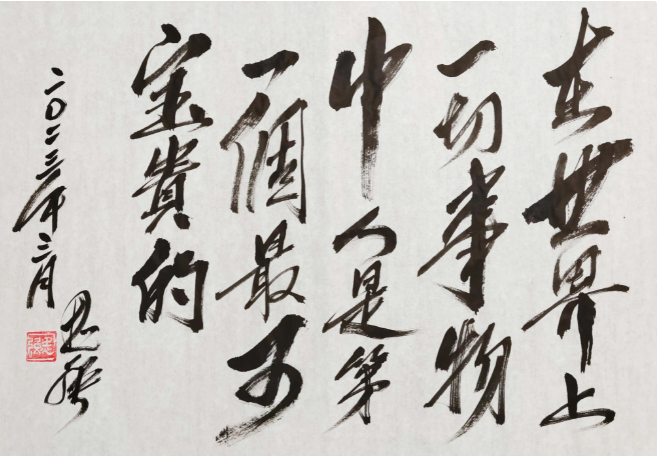 在世界上
一切事物
中人是第
一個最可
宝貴的
二〇二三年三月